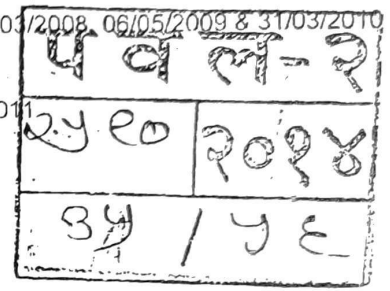 03/2008, 06/05/2009 & 31/03/2010
प व ल - २
011
२५१० २०१४
३५ / ५६